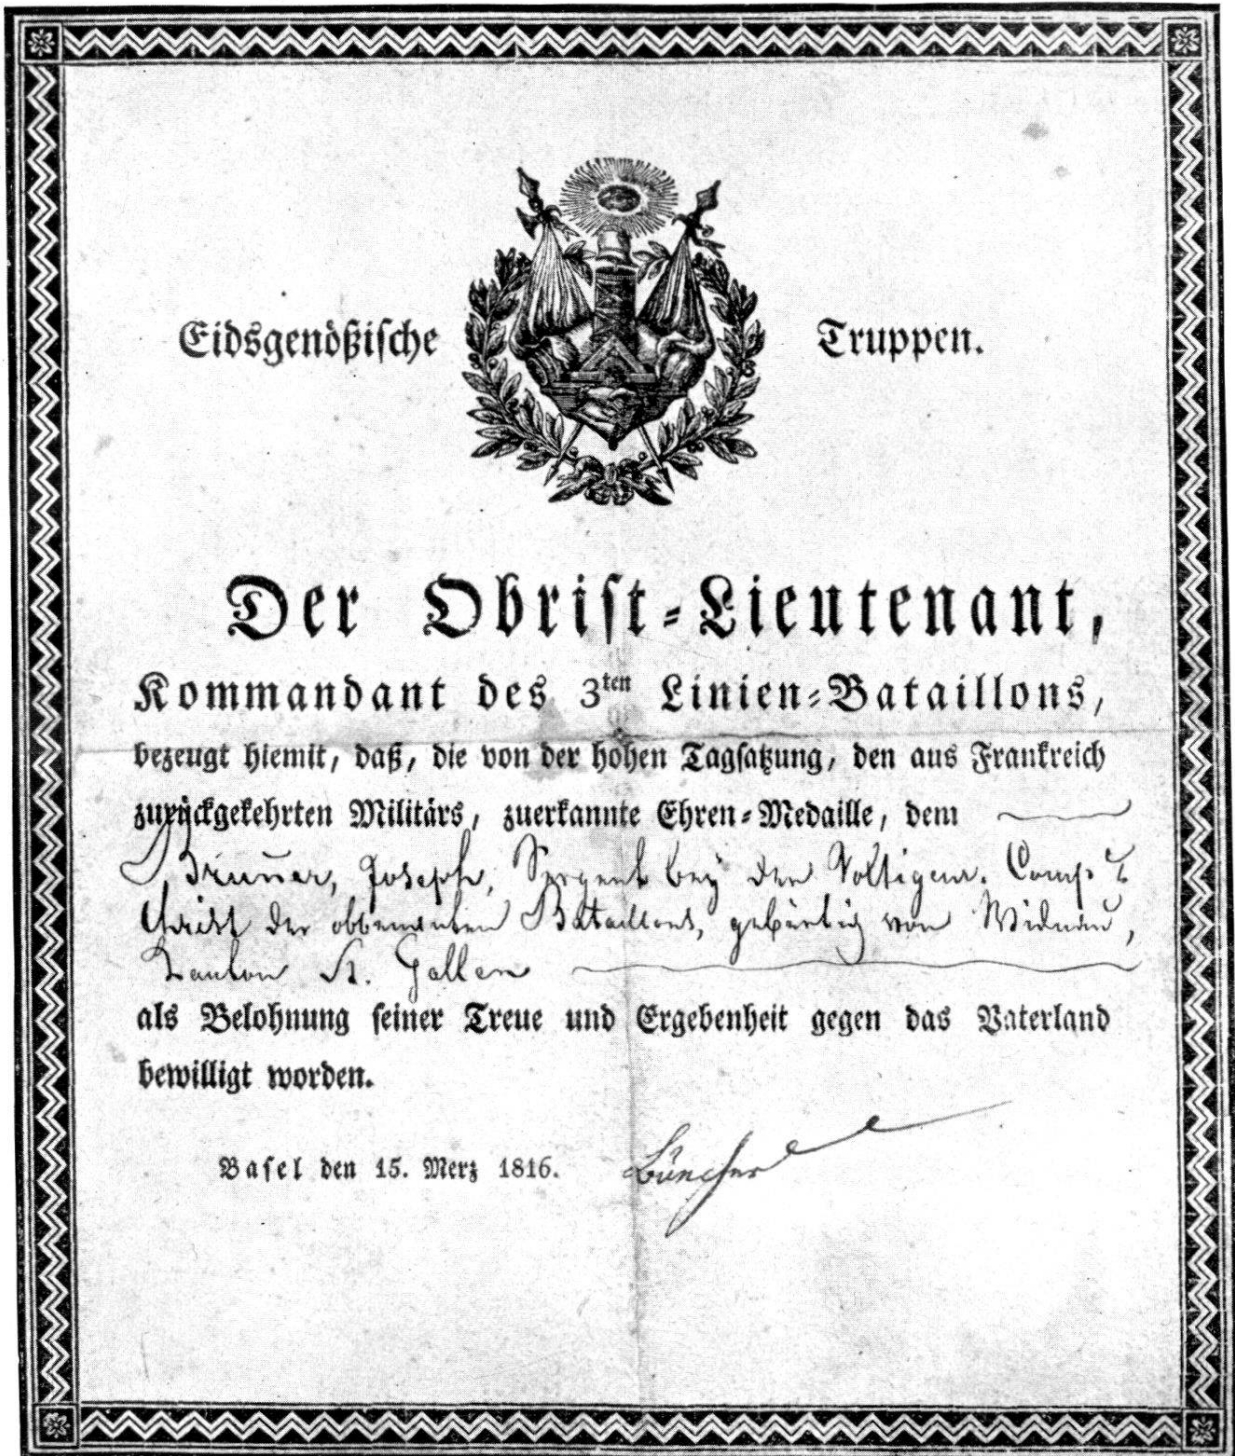 Eidsgenößische Truppen.
Der Obrist-Lieutenant,
Kommandant des 3ten Linien-Bataillons,
bezeugt hiemit, daß, die von der hohen Tagsatzung, den aus Frankreich
zurückgekehrten Militärs, zuerkannte Ehren-Medaille, dem
Joseph, Sergent bey der Voltigeur. Comp.
Christ der Bataillons, gebürtig von Widnau,
Kanton St. Gallen
als Belohnung seiner Treue und Ergebenheit gegen das Vaterland
bewilligt worden.
Basel den 15. Merz 1816.